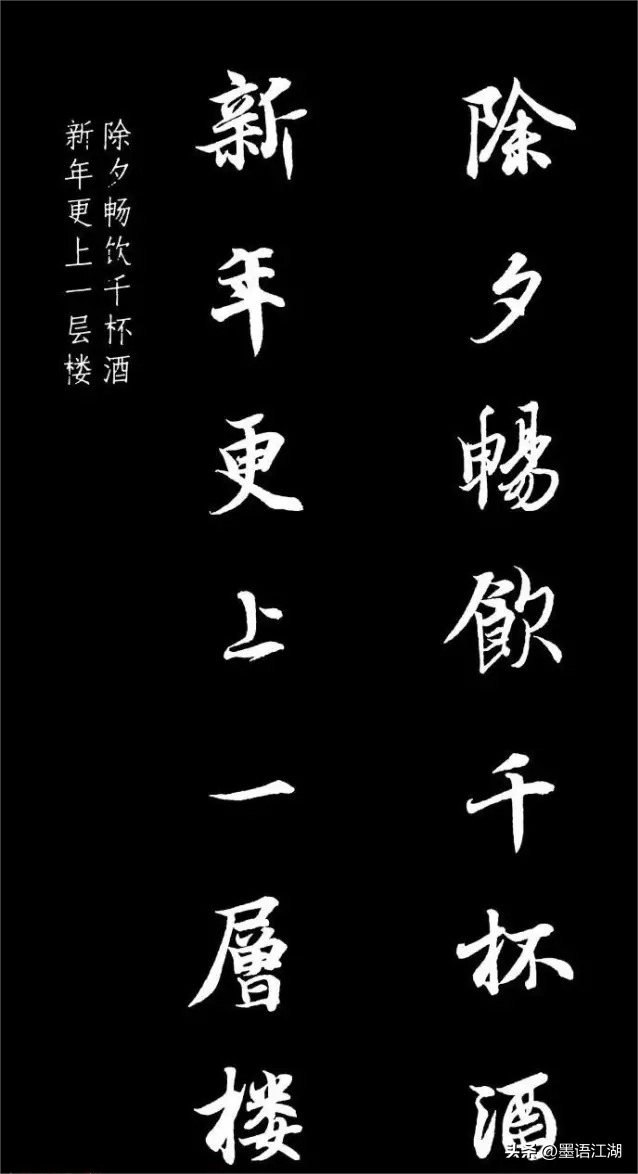 除夕暢飲千杯酒
新年更上一層楼
除夕畅饮千杯酒
新年更上一层楼
头条@墨语江湖